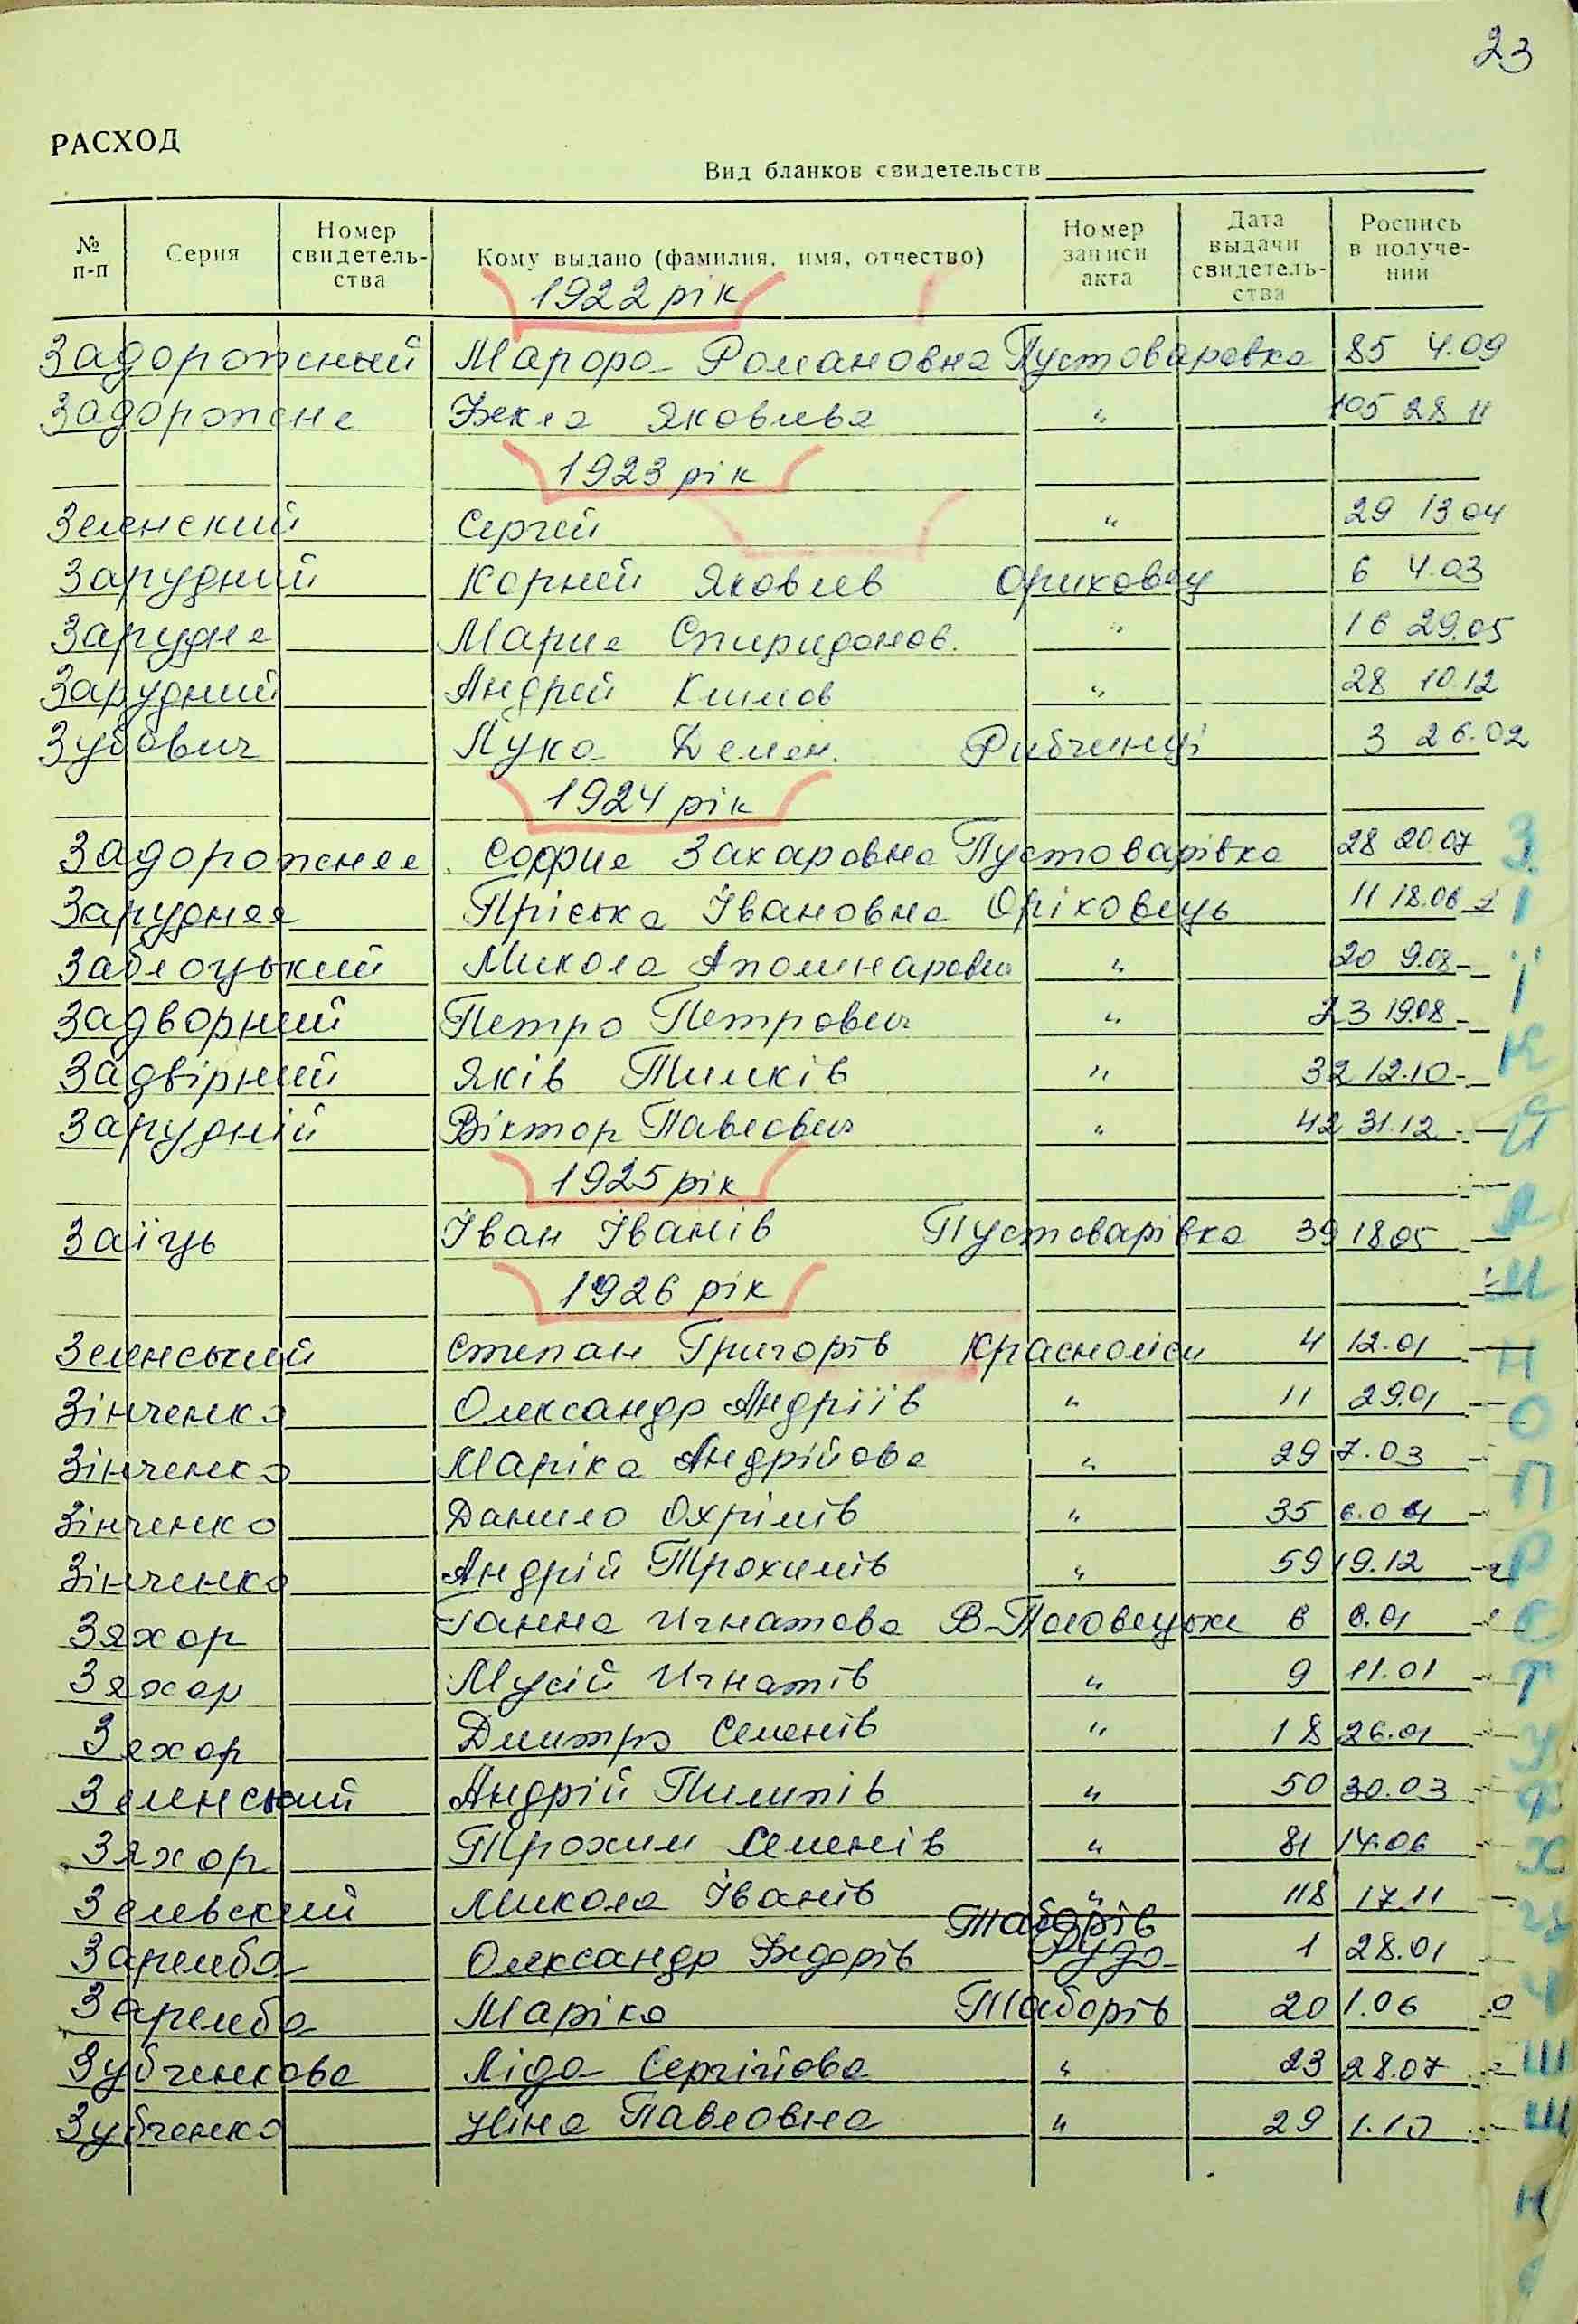 23
РАСХОД
Вид бланков свидетельств
№ п-п Серия Номер свидетель-ства Кому выдано (фамилия, имя, отчество) Номер записи акта Дата выдачи свидетель-ства Роспись в получе-нии
1922 рік
Задорожный Мароро Романовна Пустоваровка 85 4.09
Задорожна Фекла Яковлева " 105 28 11
1923 рік
Зеленский Сергей " 29 13 04
Зарудний Корней Яковлев Ориховец 6 4.03
Зарудна Мария Спиридонов. " 16 29.05
Зарудний Андрей Климов " 28 10.12
Зубович Лука Демен. Рибченці 3 26.02
1924 рік
Задорожняя София Захаровна Пустоварівка 28 20.07
Зарудная Пріська Івановна Оріховець 11 18.06
Заблоцький Микола Аполинарович " 20 9.08
Задворний Петро Петрович " 23 19.08
Задвірний Яків Тимків " 32 12.10
Зарудній Віктор Павлович " 42 31.12
1925 рік
Заїць Іван Іванів Пустоварівка 39 18 05
1926 рік
Зеленський Степан Григорів Красноліси 4 12.01
Зінченко Олександр Андріїв " 11 29.01
Зінченко Маріка Андрійова " 29 7.03
Зінченко Данило Охрімів " 35 6.04
Зінченко Андрій Трохимів " 59 19.12
Зяхор Ганна Игнатова В-Половецьке 6 6.01
Зяхор Мусій Игнатів " 9 11.01
Зяхор Дмитро Семенів " 18 26.01
Зелинський Андрій Пилипів " 50 30.03
Зяхор Трохим Семенів " 81 14.06
Зелевский Микола Іванів " 118 17.11
Таборів
Заремба Олександр Федорів Руда 1 28.01
Заремба Маріка Таборів 20 1.06
Зубченкова Ліда Сергійова " 23 28.07
Зубченко Ніна Павловна " 29 1.10
З
І
Ї
К
Й
Л
М
Н
О
П
Р
С
Т
У
Ф
Х
Ц
Ч
Ш
Щ